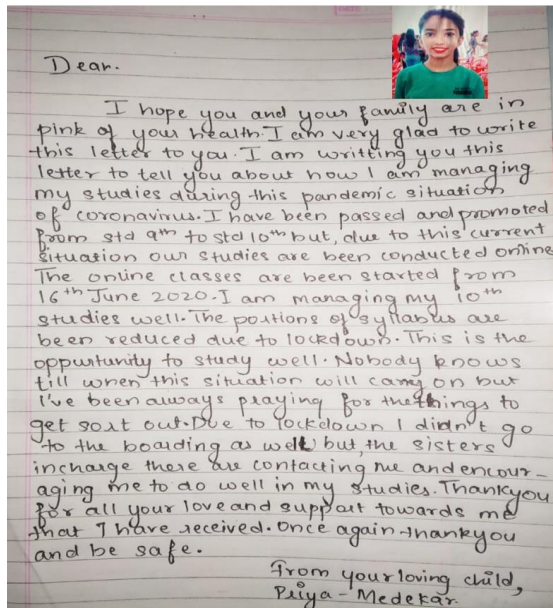 Dear.
I hope you and your family are in
pink of your health. I am very glad to write
this letter to you. I am writting you this
letter to tell you about how I am managing
my studies during this pandemic situation
of coronavirus. I have been passed and promoted
from std 9th to std 10th but, due to this current
situation our studies are been conducted online
The online classes are been started from
16th June 2020. I am managing my 10th
studies well. The portions of syllabus are
been reduced due to lockdown. This is the
oppurtunity to study well. Nobody knows
till when this situation will carry on but
I've been always praying for the things to
get sort out. Due to lockdown I didn't go
to the boading as well but, the sisters
incharge there are contacting me and encour-
aging me to do well in my studies. Thankyou
for all your love and support towards me
that I have received. Once again thankyou
and be safe.
From your loving child,
Priya - Medekar